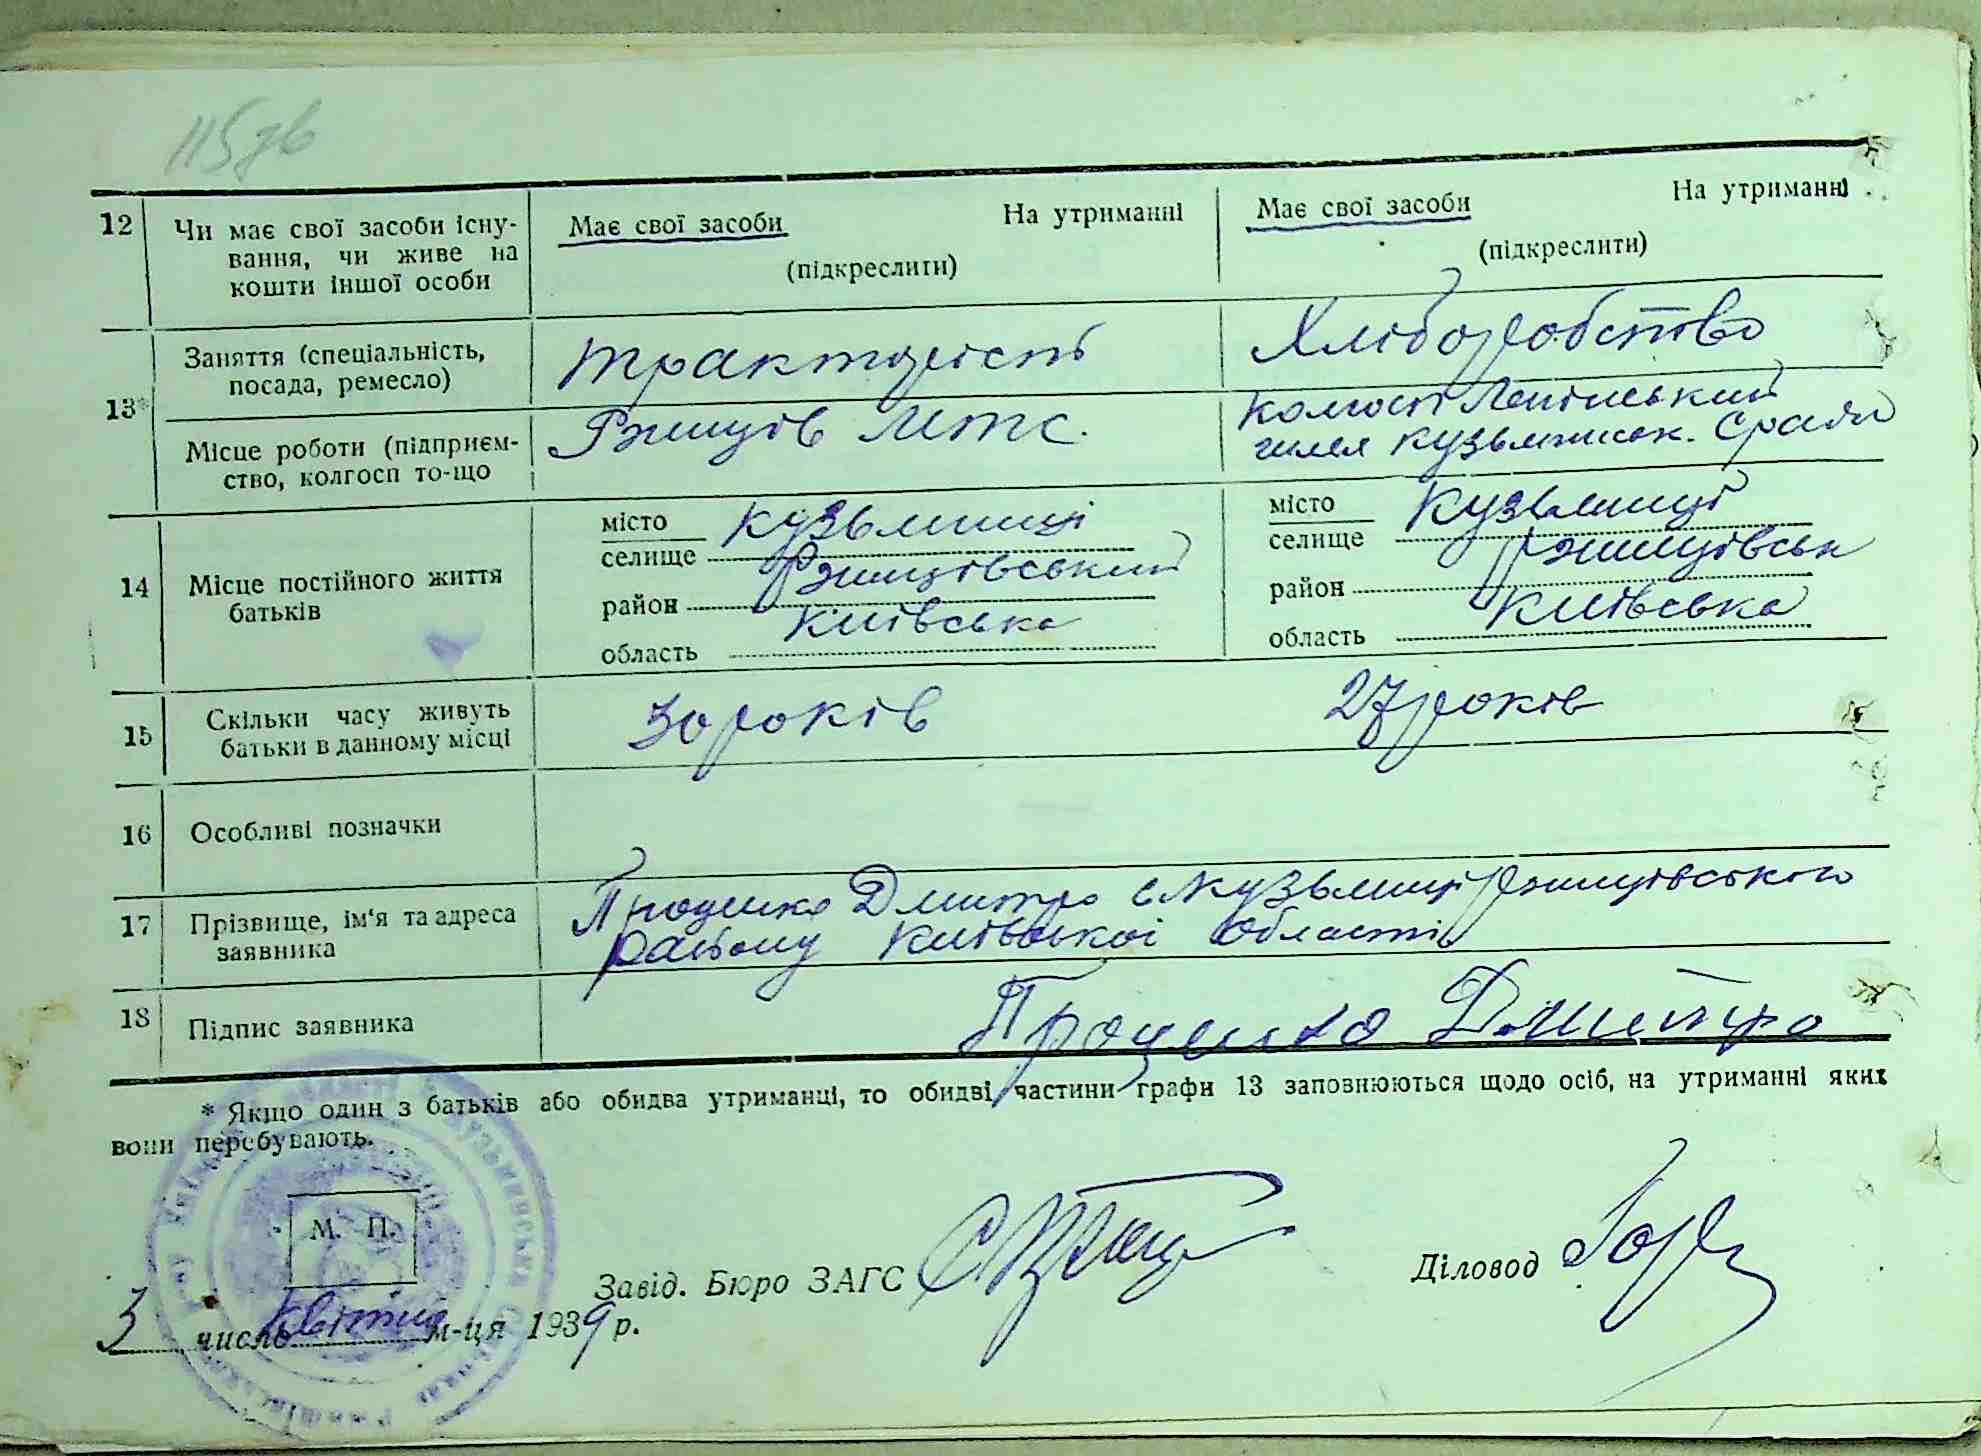 115зв
12 Чи має свої засоби існу-
вання, чи живе на
кошти іншої особи
Має свої засоби На утриманні
(підкреслити)
Має свої засоби На утриманні
(підкреслити)
13*
Заняття (спеціальність,
посада, ремесло)
тракторіст
Хліборобство
Місце роботи (підприєм-
ство, колгосп то-що
Ржищів МТС.
Колгосп Ленінський
шлях Кузьминськ. Сради
14 Місце постійного життя
батьків
місто
селище Кузьминці
район Ржищівський
область Київська
місто
селище Кузьминці
район Ржищівськ
область Київська
15 Скільки часу живуть
батьки в данному місці
30 років
27 років
16 Особливі позначки
17 Прізвище, ім'я та адреса
заявника
Проценко Дмитро с Кузьминці Ржищівського
району Київської області
18 Підпис заявника
Проценко Дмитро
* Якщо один з батьків або обидва утриманці, то обидві частини графи 13 заповнюються щодо осіб, на утриманні яких
вони перебувають.
М. П.
Завід. Бюро ЗАГС
Діловод
3 число квітня м-ця 1939 р.